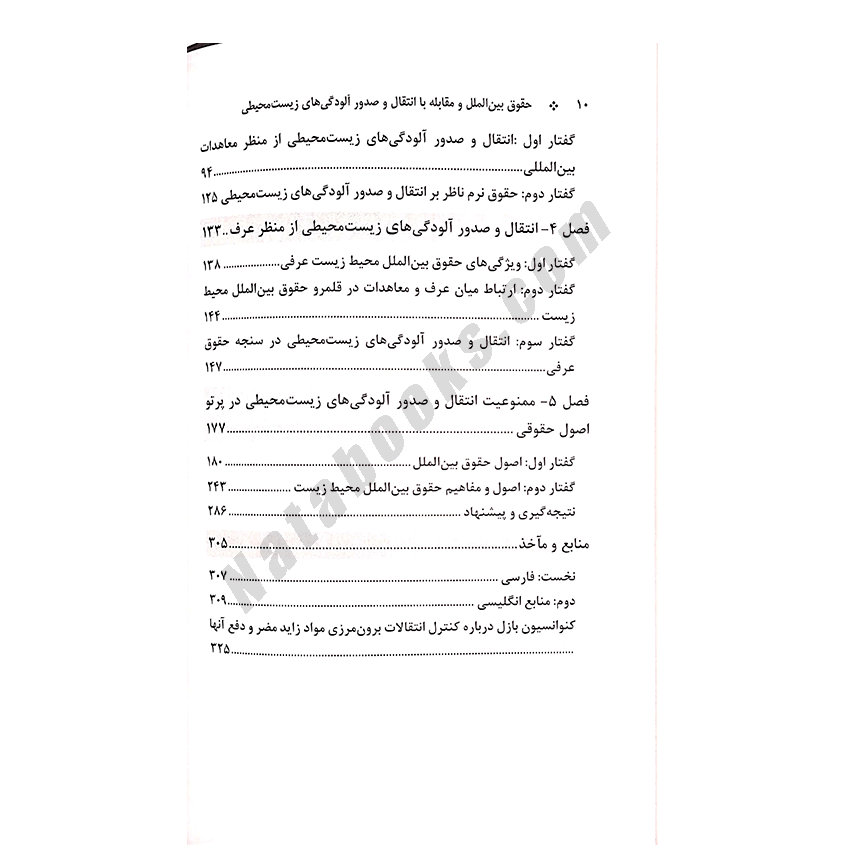 ۱۰ ❖ حقوق بین‌الملل و مقابله با انتقال و صدور آلودگی‌های زیست‌محیطی
گفتار اول :انتقال و صدور آلودگی‌های زیست‌محیطی از منظر معاهدات
بین‌المللی..........................................................................۹۴
گفتار دوم: حقوق نرم ناظر بر انتقال و صدور آلودگی‌های زیست‌محیطی ۱۲۵
فصل ۴- انتقال و صدور آلودگی‌های زیست‌محیطی از منظر عرف..۱۳۳
گفتار اول: ویژگی‌های حقوق بین‌الملل محیط زیست عرفی..................۱۳۸
گفتار دوم: ارتباط میان عرف و معاهدات در قلمرو حقوق بین‌الملل محیط
زیست ..........................................................................۱۴۴
گفتار سوم: انتقال و صدور آلودگی‌های زیست‌محیطی در سنجه حقوق
عرفی..........................................................................۱۴۷
فصل ۵- ممنوعیت انتقال و صدور آلودگی‌های زیست‌محیطی در پرتو
اصول حقوقی ..................................................................۱۷۷
گفتار اول: اصول حقوق بین‌الملل ..............................................۱۸۰
گفتار دوم: اصول و مفاهیم حقوق بین‌الملل محیط زیست .....................۲۴۳
نتیجه‌گیری و پیشنهاد ..........................................................۲۸۶
منابع و مآخذ..................................................................۳۰۵
نخست: فارسی ..................................................................۳۰۷
دوم: منابع انگلیسی ............................................................۳۰۹
کنوانسیون بازل درباره کنترل انتقالات برون‌مرزی مواد زاید مضر و دفع آنها
..........................................................................۳۲۵
Natabooks.com